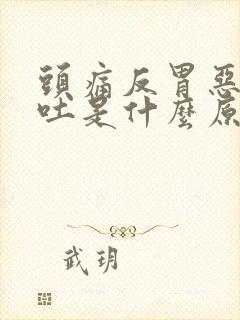 頭痛反胃惡
吐是什麼原
武玥